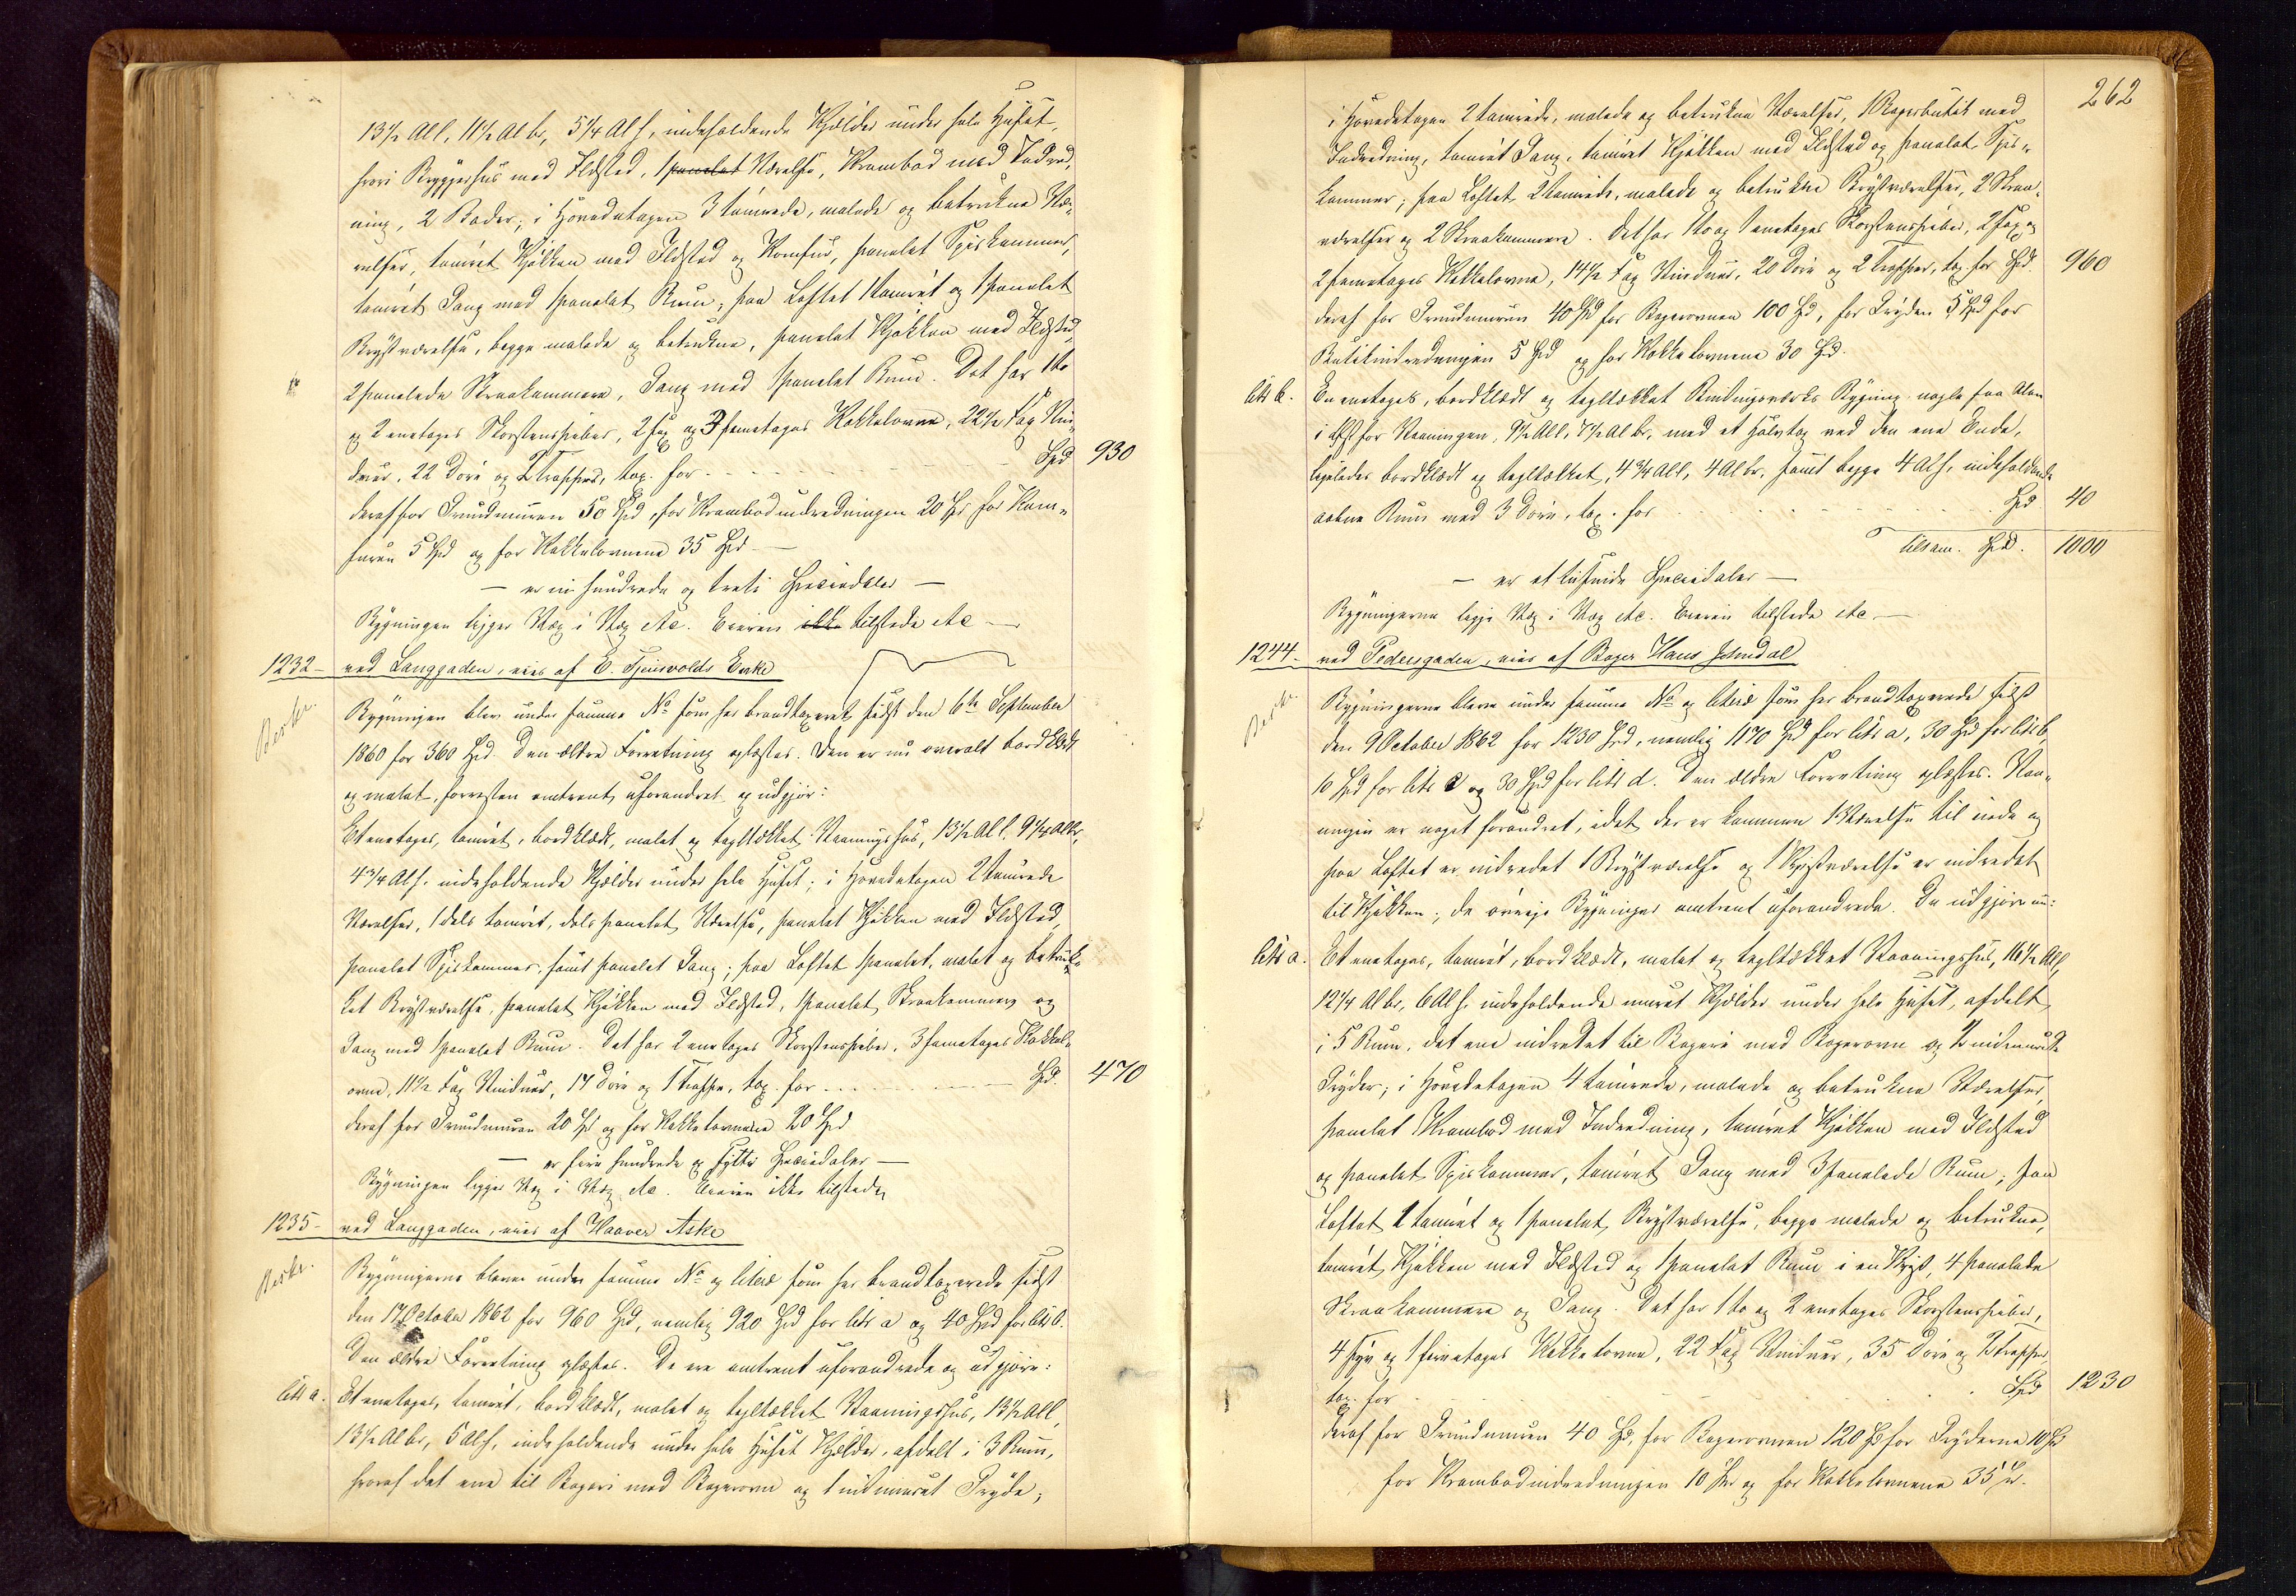 13½ Al l, 11½ Al br, 5¼ Al h, indeholdende Kjælder under hele Huset,
hvori Bryggerhus med Ildsted, 1 panelet Værelse, Krambod med Indred,
ning, 2 Boder; i Hovedetagen 3 tømrede, malede og betrukne Væ,
relser, tømret Kjøkken med Ildsted og Komfur, panelet Spiskammer,
tømret Gang med 1 panelet Rum; paa Loftet 1 tømret og 1 panelet
Kvistværelse, begge malede og betrukne, panelet Kjøkken med Ildsted,
2 panelede Skraakammere, Gang med 1 panelet Rum. Det har 1 to
og 2 enetages Skorstenspiber, 2 og 3 femetages Kakkelovne, 22½ Fag Vin
duer, 22 Døre og 2 Trapper, tax. for - - - Spd 930
deraf for Grundmuren 50 Spd, for Krambodindredningen 20 Spd, for Kom„
furen 5 Spd og for Kakkelovnene 35 Spd —
— er ni hundrede og treti Speciedaler —
Bygningen ligger Væg i Væg etc. Eieren ikke tilstede etc —
1232 - ved Langgaden, eies af E. Tjensvolds Enke
Beskr. Bygningen blev under samme No som her brandtaxeret sidst den 6te September
1860 for 360 Spd. Den ældre Forretning oplæstes. Den er nu overalt bordklædt
og malet, forresten omtrent uforandret og udgjør:
Et enetages, tømret, bordklædt, malet og tegltækket Vaaningshus, 13½ Al l. 9¼ Al br,
4¾ Al h. indeholdende Kjælder under hele Huset; i Hovedetagen 2 tømrede
Værelser, 1 dels tømret, dels panelet Værelse, panelet Kjøkken med Ildsted,
panelet Spiskammer, samt panelet Gang; paa Loftet 1 panelet, malet og betruk„
ket Kvistværelse, panelet Kjøkken med Ildsted, 1 panelet Skraakammer og
Gang med 1 panelet Rum. Det har 2 enetages Skorstenspiber, 3 femetages Kakkel„
ovne, 11½ Fag Vinduer, 17 Døre og 1 Trappe, tax. for - - - Spd. 470
deraf for Grundmuren 20 Spd og for Kakkelovnene 20 Spd
— er fire hundrede og sytti Speciedaler —
Bygningen ligger Væg i Væg etc. Eieren ikke tilstede,
1235 - ved Langgaden, eies af Haaver Aske
Beskr. Bygningerne bleve under samme No og litera som her brandtaxerede sidst
den 17 October 1862 for 960 Spd, nemlig 920 Spd for litr a og 40 Spd for litr b.
Den ældre Forretning oplæstes. De ere omtrent uforandrede og udgjøre:
litr a. Et enetages, tømret, bordklædt, malet og tegltækket Vaaningshus, 13½ Al l,
13½ Al br, 5 Al h, indeholdende under hele Huset Kjælder, afdelt i 3 Rum,
hvoraf det ene til Bageri med Bagerovn og 1 indmuret Gryde;
262
i Hovedetagen 2 tømrede, malede og betrukne Værelser, 1 Bagerbutik med
Indredning, tømret Gang, tømret Kjøkken med Ildsted og panelet Spis„
kammer; paa Loftet 2 tømrede, malede og betrukne Kvistværelser, 2 Skraa„
værelser og 2 Skraakammere. Det har 1 to og 1 enetages Skorstenspiber, 2 og
2 femetages Kakkelovne, 14½ Fag Vinduer, 20 Døre og 2 Trapper, tax. for Spd. 960
deraf for Grundmuren 40 Spd for Bagerovnen 100 Spd, for Gryden 5 Spd for
Butikindredningen 5 Spd og for Kakkelovnene 30 Spd.
litr b. En enetages, bordklædt og tegltækket Bindingsværks Bygning
i for Vaaningen, 9½ Al l, 7½ Al br, med et Halvtag ved den ene Ende,
ligeledes bordklædt og tegltækket, 4¾ Al l, 4 Al br, samt begge 4 Al h, indeholdende
aabne Rum med 3 Døre, tax. for - - - Spd 40
tilsam. Spd. 1000
— er et tusinde Speciedaler —
Bygningerne ligge Væg i Væg etc. Eieren tilstede etc. —
1244 - ved Pedersgaden, eies af Bager Hans Jøndal
Beskr. Bygningerne bleve under samme No og litera som her brandtaxerede sidst
den 9 October 1862 for 1230 Spd, nemlig 1170 Spd for litr a, 30 Spd for litr b,
10 Spd for litr c og 30 Spd for litr d. Den ældre Forretning oplæstes. Vaa„
ningen er noget forandret, idet der er kommen 1 Værelse til inde og
paa Loftet er indredet 1 Kvistværelse og 1 Kvistværelse er indredet
til Kjøkken; de øvrige Bygninger omtrent uforandrede. De udgjøre nu:
litr a. Et enetages, tømret, bordklædt, malet og tegltækket Vaaningshus, 16½ Al l,
12¼ Al br, 6 Al h. indeholdende muret Kjælder under hele Huset, afdelt
i 5 Rum, det ene indredet til Bageri med Bagerovn og 2 indmurede
Gryder; i Hovedetagen 4 tømrede, malede og betrukne Værelser,
panelet Krambod med Indredning, tømret Kjøkken med Ildsted
og panelet Spiskammer, tømret Gang med 3 panelede Rum; paa
Loftet 1 tømret og 1 panelet Kvistværelse, begge malede og betrukne,
tømret Kjøkken med Ildsted og 1 panelet Rum i en Kvist, 4 panelede
Skraakammere og Gang. Det har 1 to og 2 enetages Skorstenspiber,
4 og 1 femetages Kakkelovne, 22 Fag Vinduer, 35 Døre og 2 Trapper,
tax. for - - - Spd 1230
deraf for Grundmuren 40 Spd, for Bagerovnen 120 Spd for Gryderne 10 Spd
for Krambodindredningen 10 Spd og for Kakkelovnene 35 Spd.